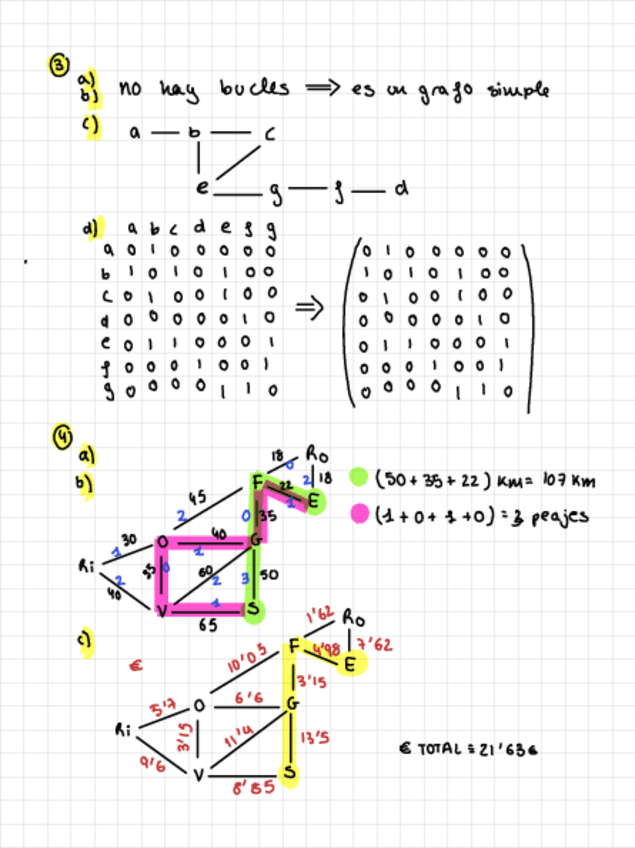 3
a)
b) no hay bucles ⟹ es un grafo simple
c)
a — b — c
e — g — f — d
d) a b c d e f g
a 0 1 0 0 0 0 0
b 1 0 1 0 1 0 0
c 0 1 0 0 1 0 0
d 0 0 0 0 0 1 0
e 0 1 1 0 0 0 1
f 0 0 0 1 0 0 1
g 0 0 0 0 1 1 0
⟹
0 1 0 0 0 0 0
1 0 1 0 1 0 0
0 1 0 0 1 0 0
0 0 0 0 0 1 0
0 1 1 0 0 0 1
0 0 0 1 0 0 1
0 0 0 0 1 1 0
4
a)
b)
18 Ro
0
F 22 2 18
1 E
45
2 0 35
30 O 40 G
1 1
Ri 35 0 60 50
2 2 3
40 V 1 S
65
(50+35+22) km = 107 km
(1+0+1+0) = 3 peajes
c)
€
1'62 Ro
F 4'98 7'62
E
10'05 3'15
5'7 O 6'6 G
Ri 3'15 11'4 13'5
9'6 V S
8'85
€ TOTAL = 21'63€